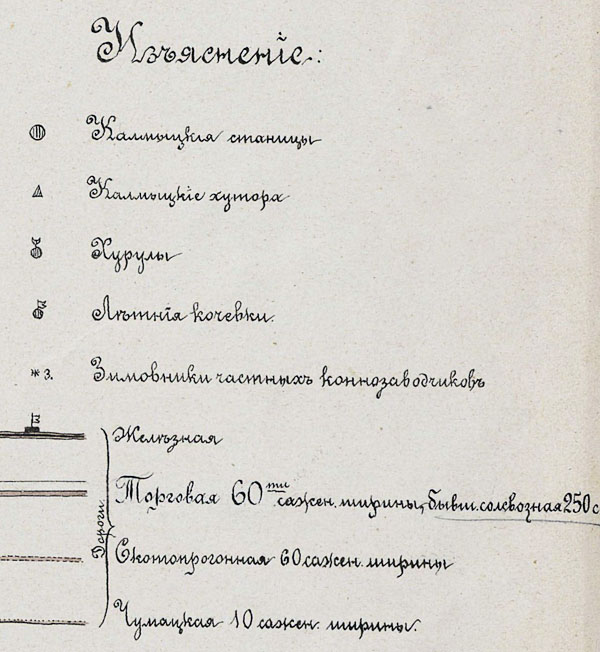 Изъясненіе:
Калмыцкія станицы
Калмыцкіе хутора
Хурулы
Лѣтнія кочевки.
з. Зимовники частныхъ коннозаводчиковъ
Дороги
Желѣзная
Торговая 60ти сажен. ширины, бывш. 250 с
Скотопрогонная 60 сажен. ширины
Чумацкая 10 сажен. ширины.